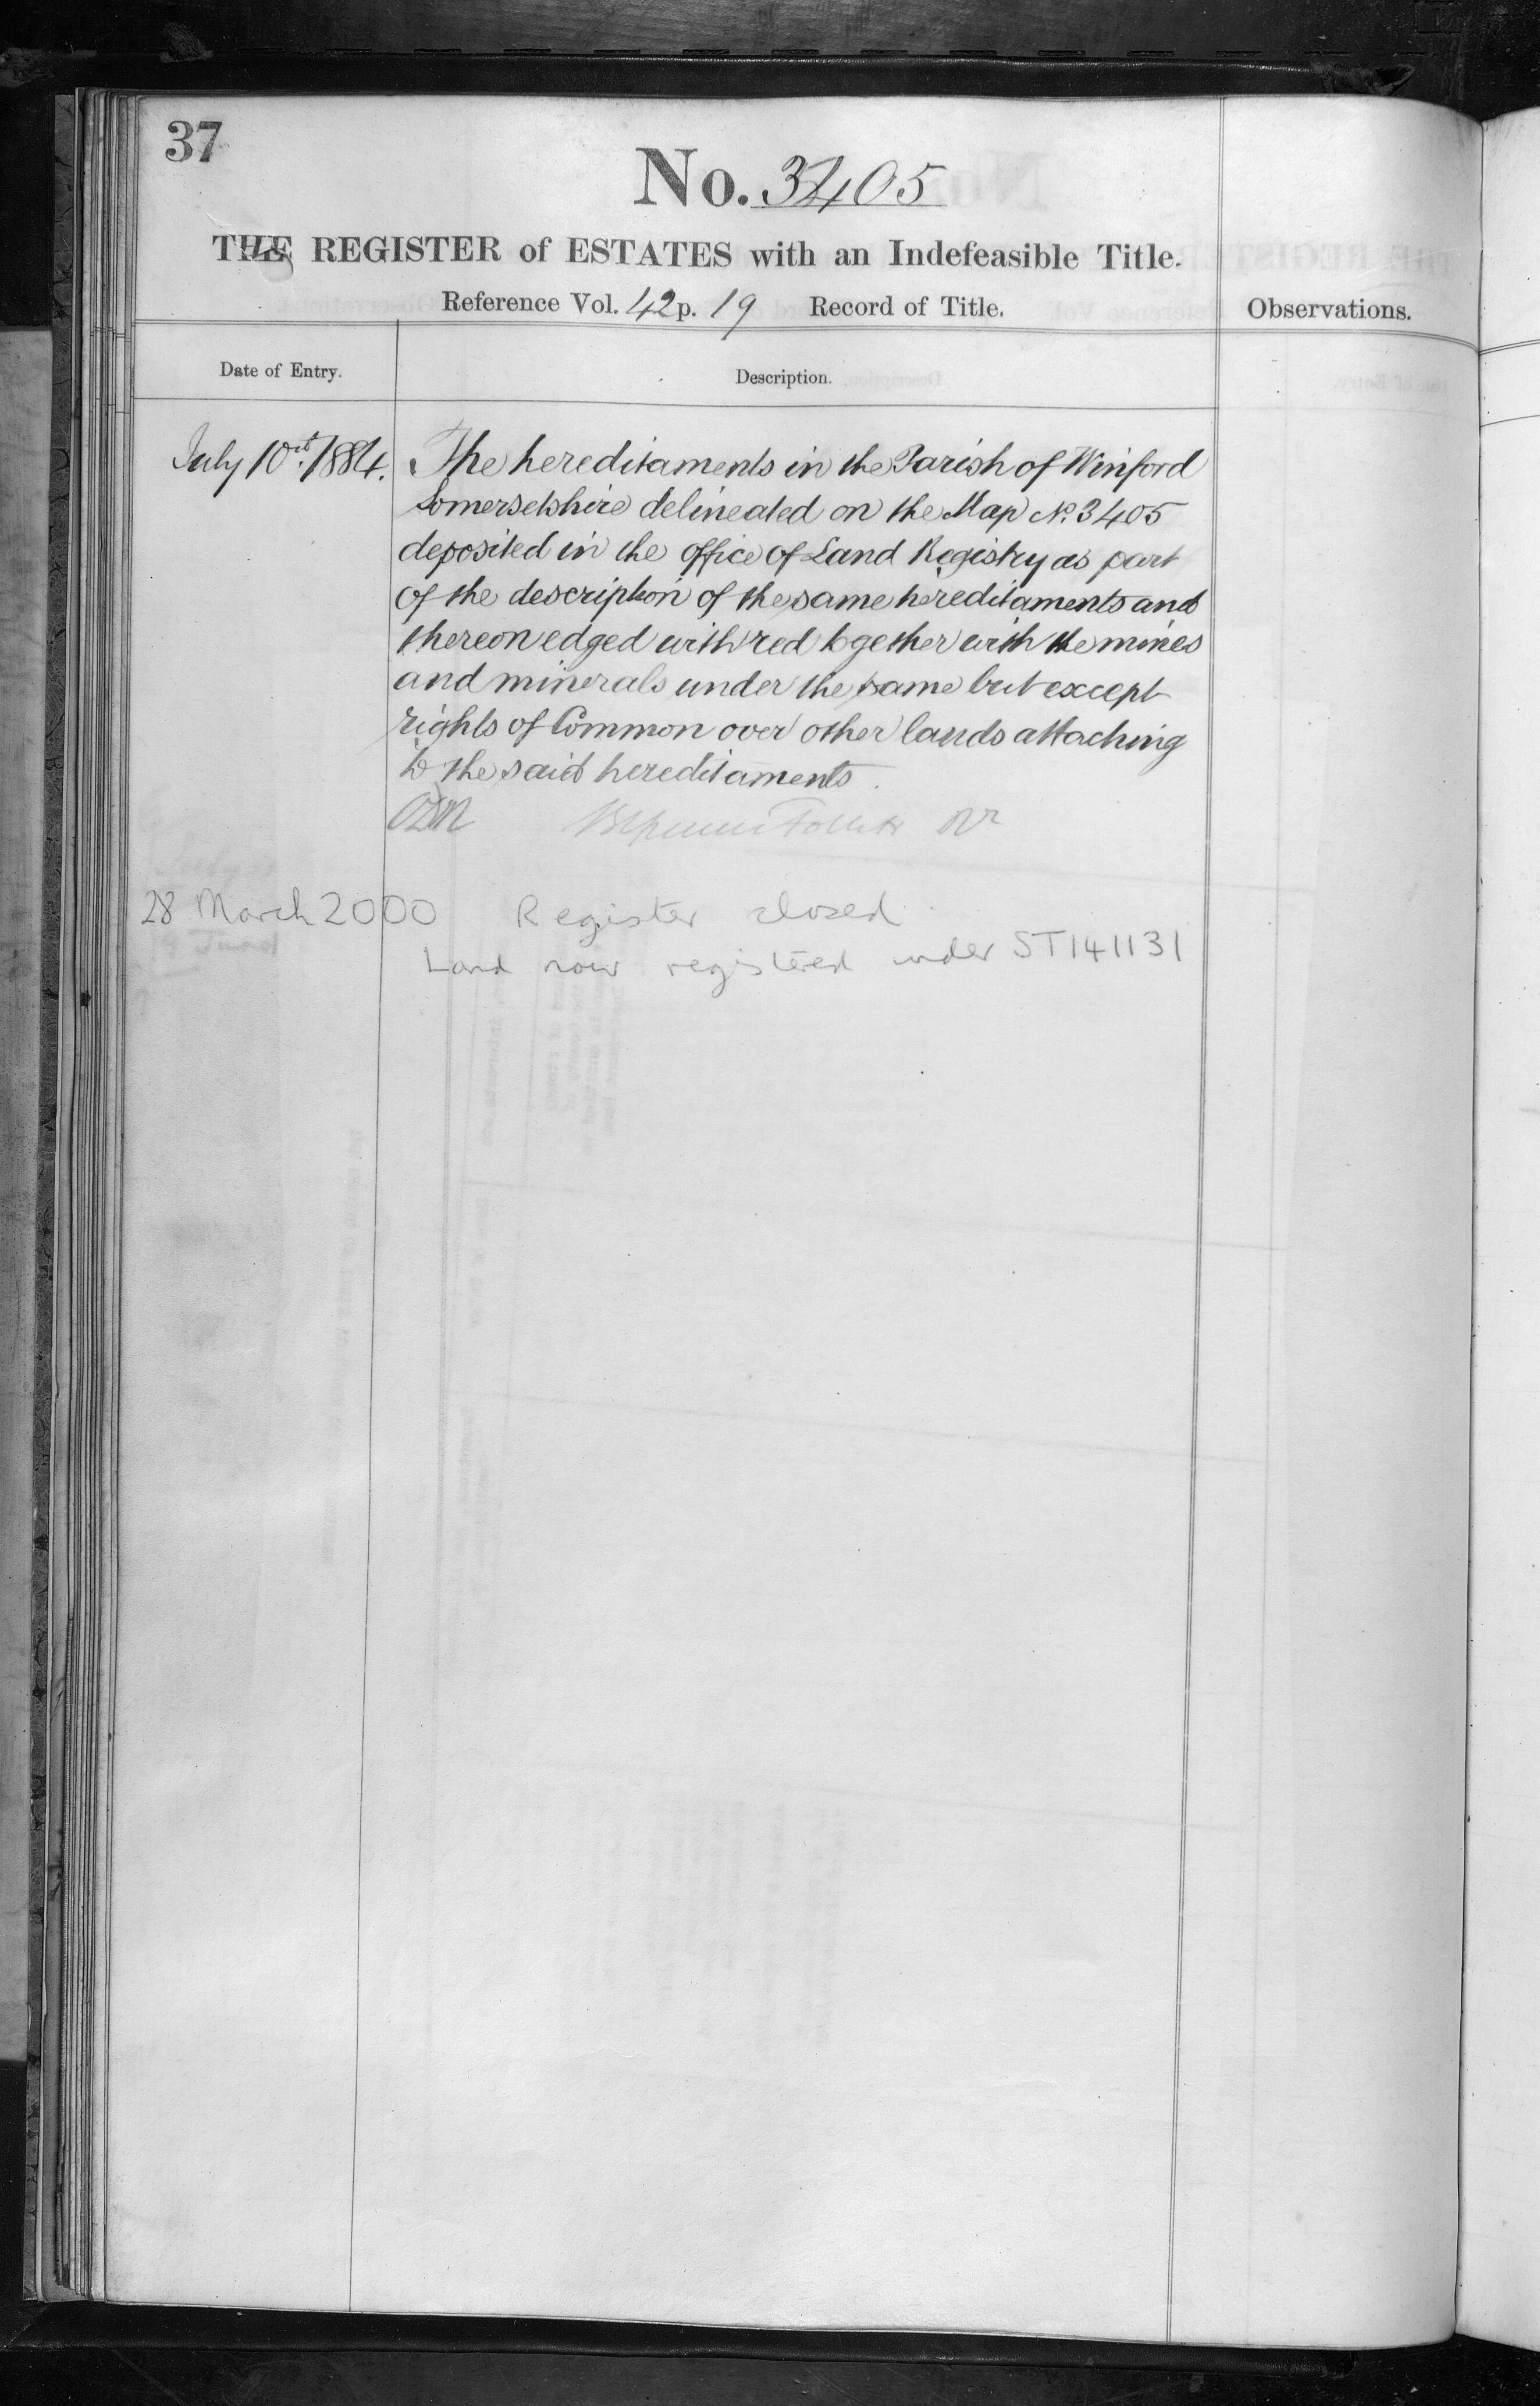 37
No. 3405
THE REGISTER of ESTATES with an Indefeasible Title.
Reference Vol. 42 p. 19 Record of Title.
Observations.
Date of Entry.
Description.
July 10th 1884.
The hereditaments in the Parish of Winford
Somersetshire delineated on the Map No. 3405
deposited in the office of Land Registry as part
of the description of the same hereditaments and
thereon edged with red together with the mines
and minerals under the same but except
rights of Common over other lands attaching
to the said hereditaments.
28 March 2000 Register closed.
Land now registered under ST141131